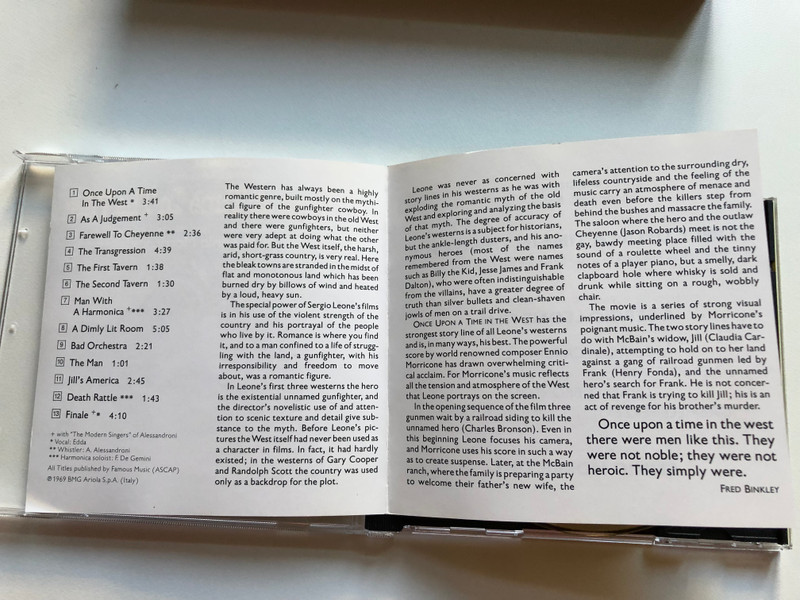 1 Once Upon A Time
In The West * 3:41
2 As A Judgement + 3:05
3 Farewell To Cheyenne ** 2:36
4 The Transgression 4:39
5 The First Tavern 1:38
6 The Second Tavern 1:30
7 Man With
A Harmonica +*** 3:27
8 A Dimly Lit Room 5:05
9 Bad Orchestra 2:21
10 The Man 1:01
11 Jill's America 2:45
12 Death Rattle *** 1:43
13 Finale +* 4:10
+ with "The Modern Singers" of Alessandroni
* Vocal: Edda
** Whistler: A. Alessandroni
*** Harmonica soloist: F. De Gemini
All Titles published by Famous Music (ASCAP)
©1969 BMG Ariola S.p.A. (Italy)
The Western has always been a highly
romantic genre, built mostly on the mythi-
cal figure of the gunfighter cowboy. In
reality there were cowboys in the old West
and there were gunfighters, but neither
were very adept at doing what the other
was paid for. But the West itself, the harsh,
arid, short-grass country, is very real. Here
the bleak towns are stranded in the midst of
flat and monotonous land which has been
burned dry by billows of wind and heated
by a loud, heavy sun.
The special power of Sergio Leone's films
is in his use of the violent strength of the
country and his portrayal of the people
who live by it. Romance is where you find
it, and to a man confined to a life of strugg-
ling with the land, a gunfighter, with his
irresponsibility and freedom to move
about, was a romantic figure.
In Leone's first three westerns the hero
is the existential unnamed gunfighter, and
the director's novelistic use of and atten-
tion to scenic texture and detail give sub-
stance to the myth. Before Leone's pic-
tures the West itself had never been used as
a character in films. In fact, it had hardly
existed; in the westerns of Gary Cooper
and Randolph Scott the country was used
only as a backdrop for the plot.
Leone was never as concerned with
story lines in his westerns as he was with
exploding the romantic myth of the old
West and exploring and analyzing the basis
of that myth. The degree of accuracy of
Leone's westerns is a subject for historians,
but the ankle-length dusters, and his ano-
nymous heroes (most of the names
remembered from the West were names
such as Billy the Kid, Jesse James and Frank
Dalton), who were often indistinguishable
from the villains, have a greater degree of
truth than silver bullets and clean-shaven
jowls of men on a trail drive.
ONCE UPON A TIME IN THE WEST has the
strongest story line of all Leone's westerns
and is, in many ways, his best. The powerful
score by world renowned composer Ennio
Morricone has drawn overwhelming criti-
cal acclaim. For Morricone's music reflects
all the tension and atmosphere of the West
that Leone portrays on the screen.
In the opening sequence of the film three
gunmen wait by a railroad siding to kill the
unnamed hero (Charles Bronson). Even in
this beginning Leone focuses his camera,
and Morricone uses his score in such a way
as to create suspense. Later, at the McBain
ranch, where the family is preparing a party
to welcome their father's new wife, the
camera's attention to the surrounding dry,
lifeless countryside and the feeling of the
music carry an atmosphere of menace and
death even before the killers step from
behind the bushes and massacre the family.
The saloon where the hero and the outlaw
Cheyenne (Jason Robards) meet is not the
gay, bawdy meeting place filled with the
sound of a roulette wheel and the tinny
notes of a player piano, but a smelly, dark
clapboard hole where whisky is sold and
drunk while sitting on a rough, wobbly
chair.
The movie is a series of strong visual
impressions, underlined by Morricone's
poignant music. The two story lines have to
do with McBain's widow, Jill (Claudia Car-
dinale), attempting to hold on to her land
against a gang of railroad gunmen led by
Frank (Henry Fonda), and the unnamed
hero's search for Frank. He is not concer-
ned that Frank is trying to kill Jill; his is an
act of revenge for his brother's murder.
Once upon a time in the west
there were men like this. They
were not noble; they were not
heroic. They simply were.
FRED BINKLEY